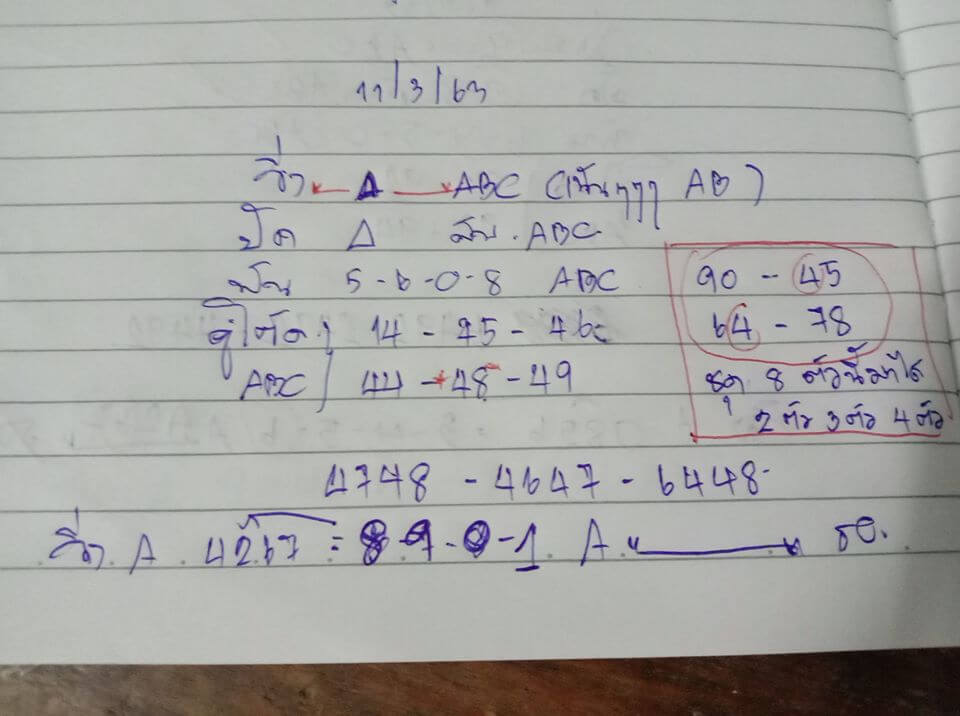 11/3/63
วิ่ง 4 ABC (เน้นๆๆๆ AB)
ปัด 4 ABC
5-6-0-8 ABC
14 - 45 - 46
ABC 44 - 48 - 49
90 - 45
64 - 78
ชุด 8 ตัวนี้มาได้
2 ตัว 3 ตัว 4 ตัว
4748 - 4647 - 6448
วิ่ง. A. 4267 = 8-9-0-1. A.